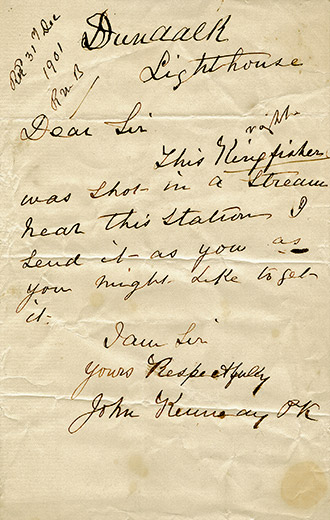 31st Dec
1901
R M B
Dundalk
Lighthouse
Dear Sir
This Kingfisher
was shot in a Stream
near this Station I
send it as you as
you might like to get
it.
I am Sir
Yours Respectfully
John Kennedy PK